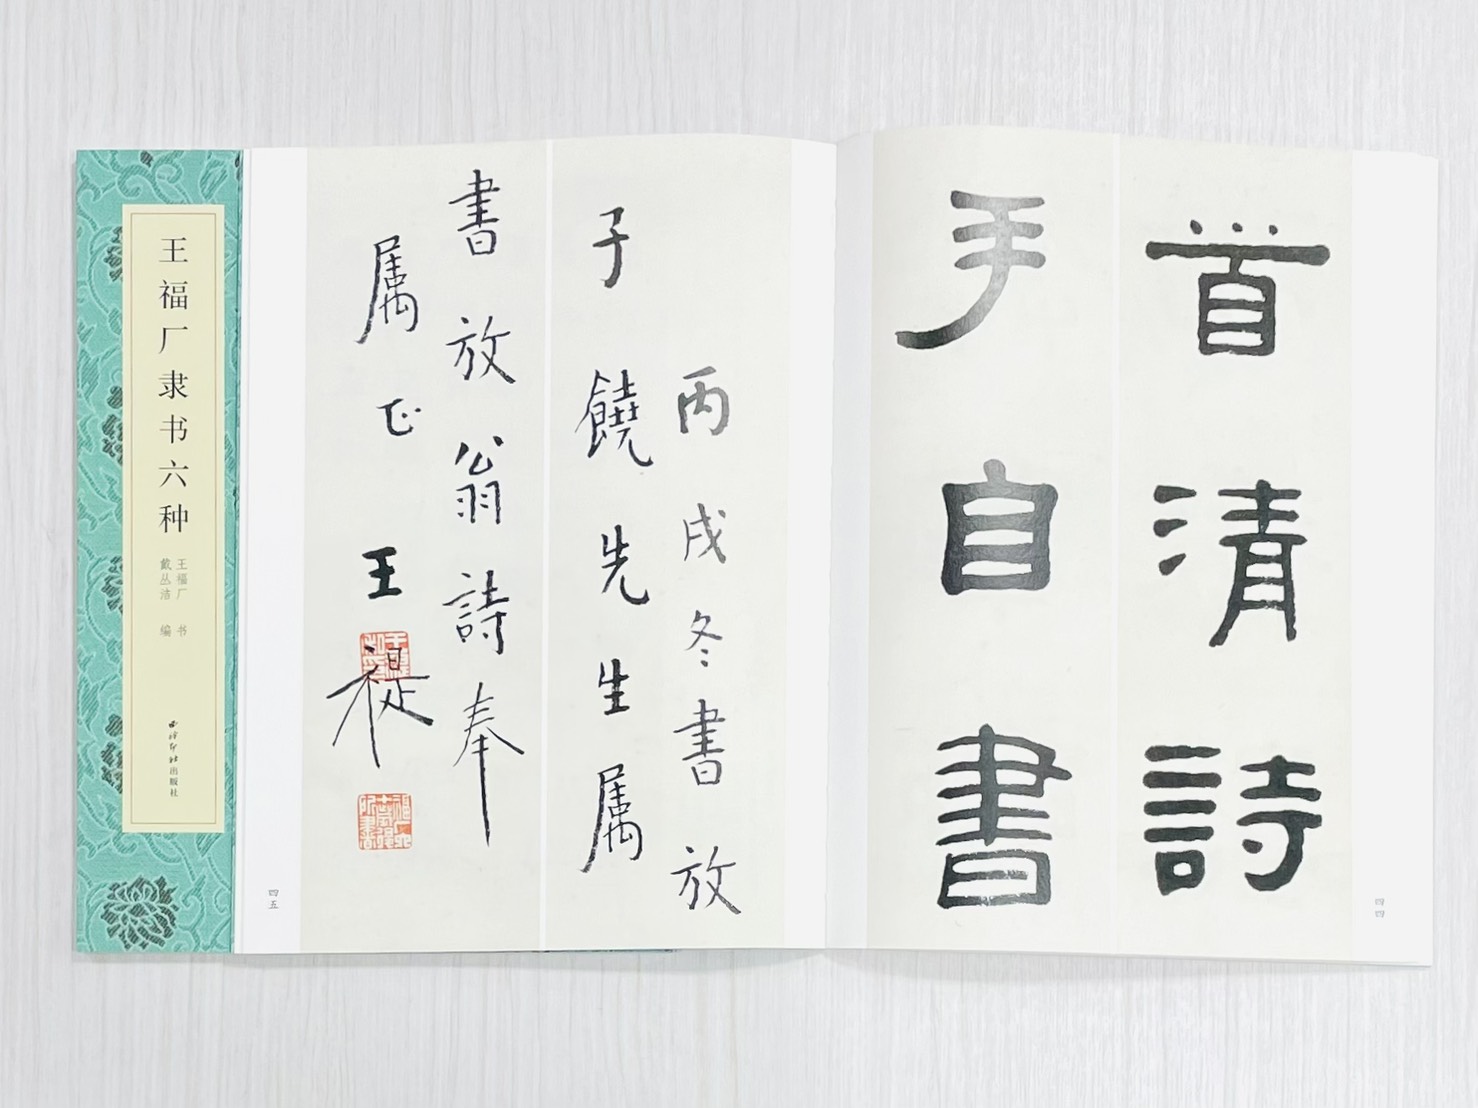 王福厂隶书六种
王福厂 书
戴丛洁 编
西泠印社出版社
首清詩
手自書
四四
丙戌冬書放
子饒先生属
書放翁詩奉
属正 王禔
四五